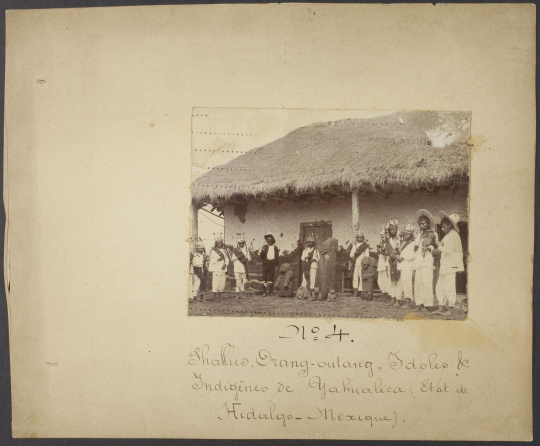 Nº 4.
Phallus, Orang-outang, Idoles &
Indigènes de Yahualica (Etat de
Hidalgo - Mexique).